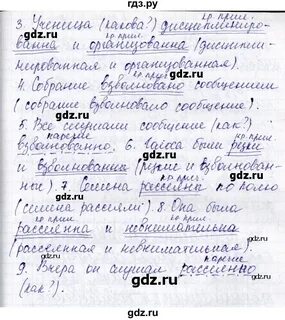 гдз.ру
кр.прил.
3. Ученица (какова?) дисциплиниро-
ванна и организованна (дисципли-
нированная и организованная).
кр.прич.
4. Собрание взволновано сообщением
(собрание взволновало сообщение).
5. Все слушали сообщение (как?)
наречие
кр.прил.
взволнованно. 6. Голоса были резки
и взволнованны (резкие и взволнован-
кр.прич.
ные). 7. Семена рассеяны по полю
(семена рассеяли). 8. Она была
кр.прил.
кр.прил.
рассеянна и невнимательна
(рассеянная и невнимательная).
наречие
9. Вчера он слушал рассеянно
(как?).
gdz.ru